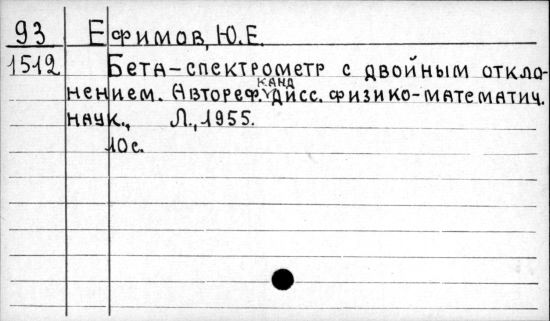 93 Ефимов, Ю.Е.
1512 Бета-спектрометр с двойным откло-
нением. Автореф. канд дисс. физико-математич.
наук., Л., 1955.
10с.